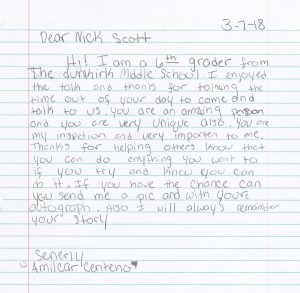 3-7-18
Dear Nick Scott
Hi! I am a 6th grader from
The dunkirk Middle School. I enjoyed
the talk and thanks for talking the
time out of your day to come and
talk to us. you are an amazing person
and you are very unique also. You are
my inspetion and very importen to me.
Thanks for helping others know that
you can do anything you want to
if you try and know you can
do it. If you have the chance can
you send me a pic and with youre
autograph. Also I will always remamber
your story
Senerly:
Amilcar Centeno